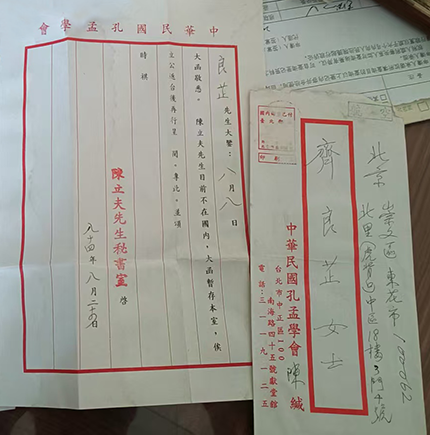 中華民國孔孟學會
良芷先生大鑒：八月八日
大函敬悉。 陳立夫先生目前不在國內，大函暫存本室，俟
立公返台後再行呈 閱，專此。並頌
時祺
陳立夫先生秘書室 啓
年八月
100062
北京 崇文區 東花市
北里 中區18樓3門4號
齊良芷女士
中華民國孔孟學會 陳 緘
台北市中正區100
南海路四十五號獻堂館
電話：三一一九一二五